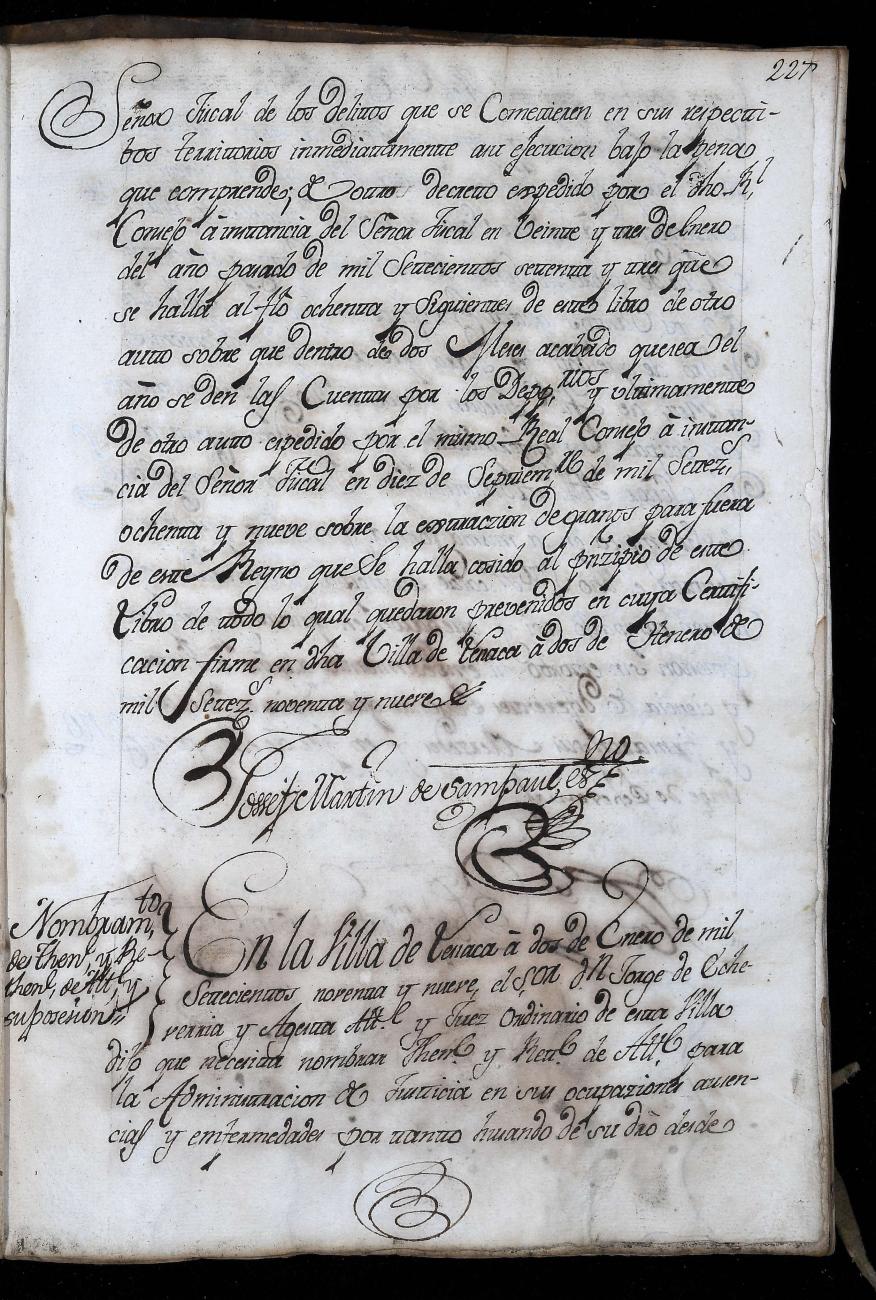 227
Señor Fiscal de los delitos que se Cometieren en sus respecti-
bos territorios inmediatamente a su ejecucion bajo la pena
que comprende; de otro decreto expedido por el dho Rl
Consejo à instancia del Señor Fiscal en Veinte y tres de Enero
del año pasado de mil Setecientos setenta y tres que
se halla al flo ochenta y Siguientes de este libro de otro
auto sobre que dentro de dos Meses acabado que sea el
año se den las Cuentas por los Depp.rios y ultimamente
de otro auto espedido por el mismo Real Consejo à instan-
cia del Señor Fiscal en diez de Septiem.re de mil Settez.s
ochenta y nueve sobre la estraczion de granos para fuera
de este Reyno que Se halla cosido al prizipio de este
Libro de todo lo qual quedaron prevenidos en cuya Certifi-
cacion firme en dha Villa de Venaca à dos de Henero de
mil Settez.s noventa y nueve
Josseff Martin de Sampaul, es.no
Nombram.to
de then.e, y Re-
then.e, de All.e, y
suposesion
En la Villa de Venaca à dos de Enero de mil
Setecientos noventa y nueve, el S.or D.n Jorge de Eche-
verria y Azeta Alc.l y Juez Ordinario de esta Villa
dijo que necesita nombrar Then.e y Ret.e de All.e para
la Administracion de Justicia en sus ocupaziones ausen-
cias y enfermedades por tanto husando de su dro desde